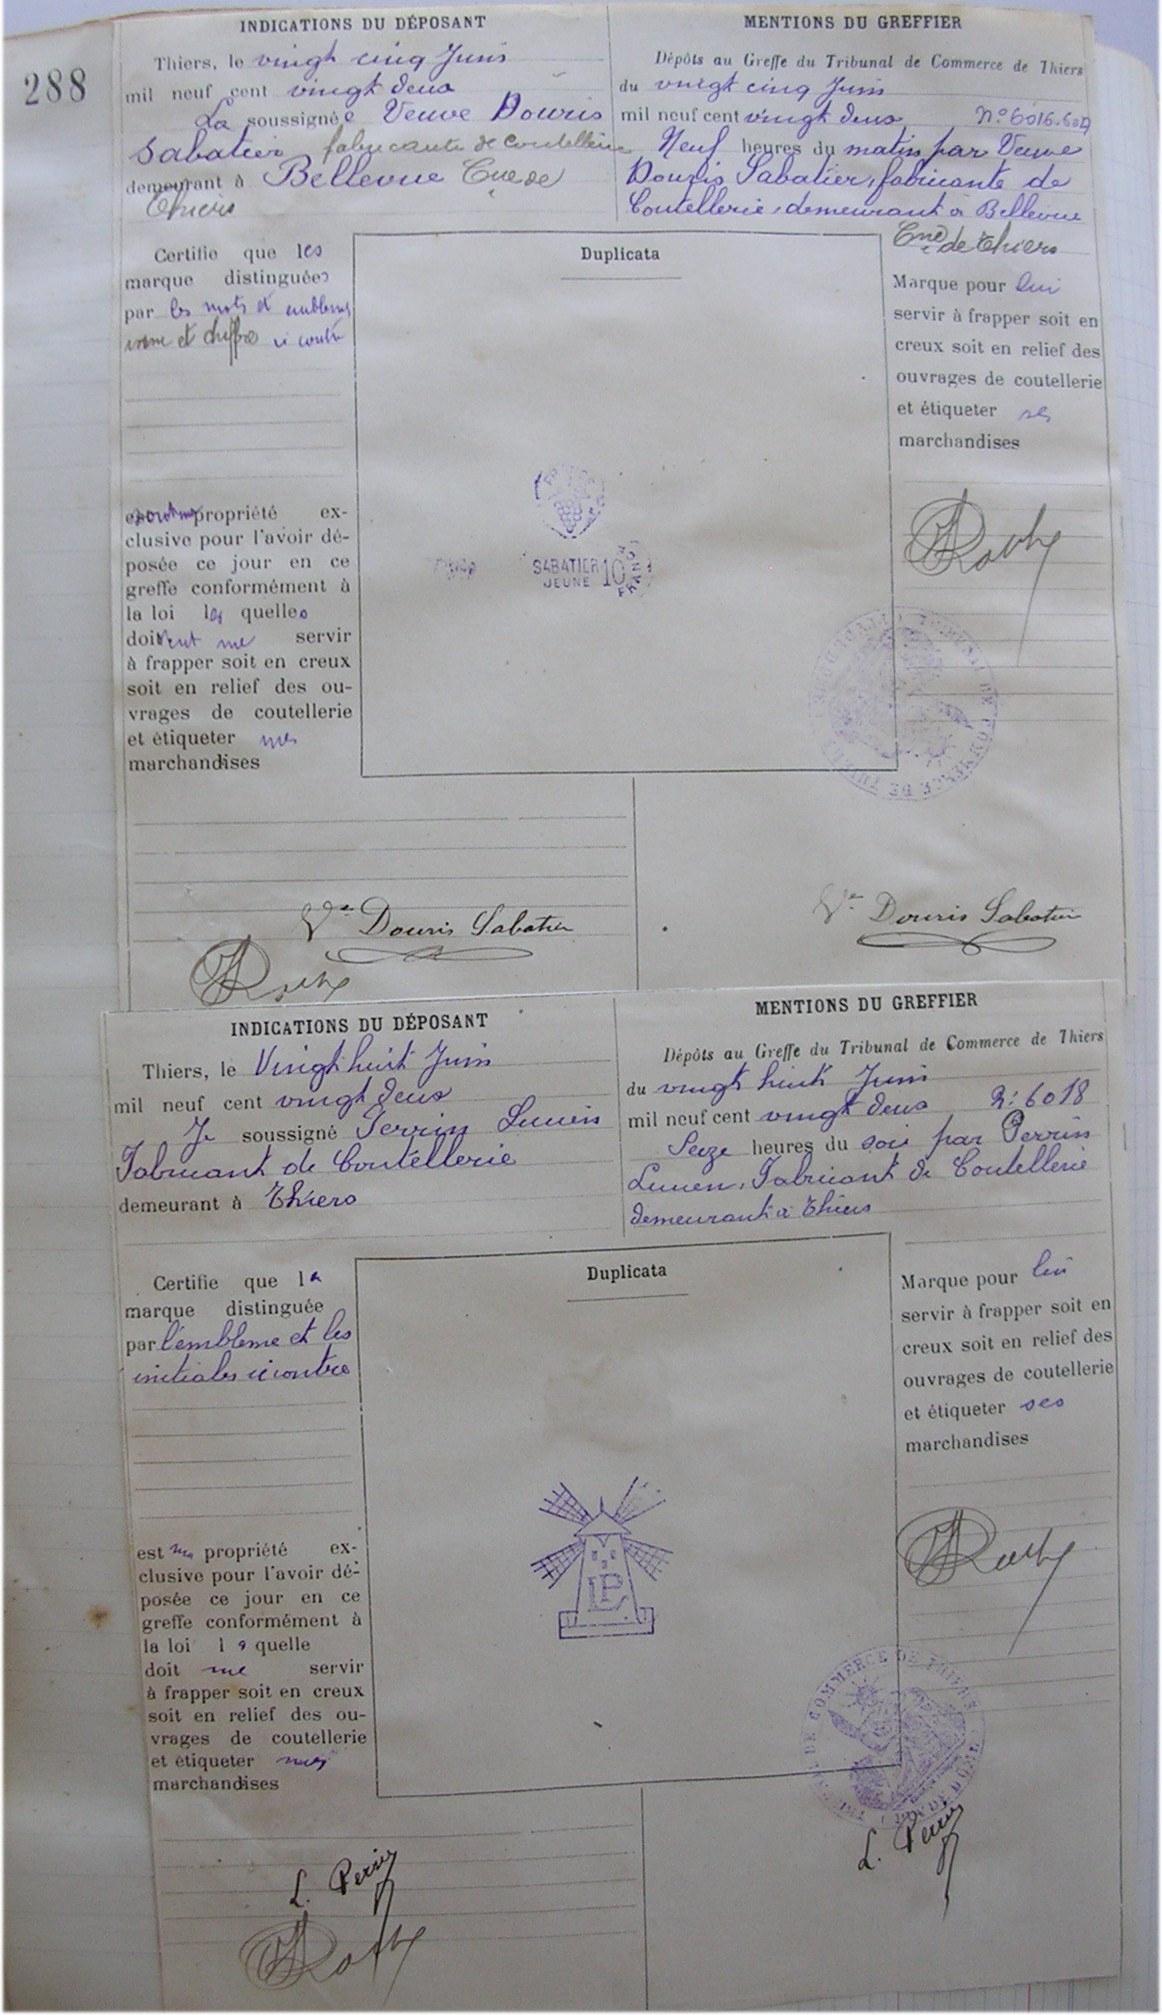 288
INDICATIONS DU DÉPOSANT
Thiers, le vingt cinq Juin
mil neuf cent vingt deux
La soussignée Veuve Douris
Sabatier fabricante de coutellerie
demeurant à Bellevue Cne de
Thiers
MENTIONS DU GREFFIER
Dépôts au Greffe du Tribunal de Commerce de Thiers
du vingt cinq Juin
mil neuf cent vingt deux No 6016-
Neuf heures du matin par Veuve
Douris Sabatier, fabricante de
Coutellerie, demeurant à Bellevue
Cne de Thiers
Certifie que les
marque distinguées
par les mots et emblemes
et chiffre ci contre
propriété ex-
clusive pour l'avoir dé-
posée ce jour en ce
greffe conformément à
la loi les quelles
doivent me servir
à frapper soit en creux
soit en relief des ou-
vrages de coutellerie
et étiqueter mes
marchandises
Duplicata
SABATIER
JEUNE
10
FRANCE
Marque pour lui
servir à frapper soit en
creux soit en relief des
ouvrages de coutellerie
et étiqueter ses
marchandises
Vve Douris Sabatier
Vve Douris Sabatier
INDICATIONS DU DÉPOSANT
Thiers, le Vingt huit Juin
mil neuf cent vingt deux
Je soussigné Perrin Lucien
Fabricant de Coutellerie
demeurant à Thiers
MENTIONS DU GREFFIER
Dépôts au Greffe du Tribunal de Commerce de Thiers
du vingt huit Juin
mil neuf cent vingt deux No 6018
Seize heures du soir par Perrin
Lucien, Fabricant de Coutellerie
demeurant à Thiers
Certifie que la
marque distinguée
par l'embleme et les
initiales ci contre
est ma propriété ex-
clusive pour l'avoir dé-
posée ce jour en ce
greffe conformément à
la loi la quelle
doit me servir
à frapper soit en creux
soit en relief des ou-
vrages de coutellerie
et étiqueter mes
marchandises
Duplicata
LP
Marque pour lui
servir à frapper soit en
creux soit en relief des
ouvrages de coutellerie
et étiqueter ses
marchandises
TRIBUNAL DE COMMERCE DE THIERS
L. Perrin
L. Perrin